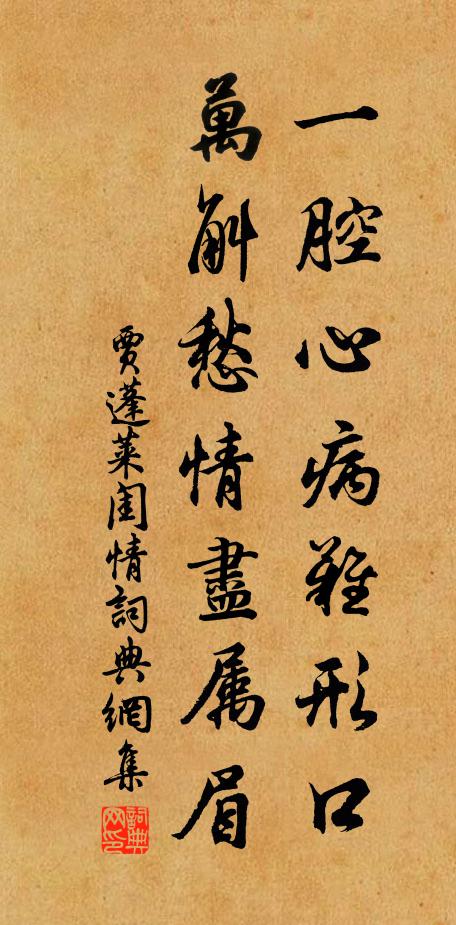 一腔心病難形口
萬斛愁情盡属眉
賈蓬萊閨情詞典網集
詞典网印